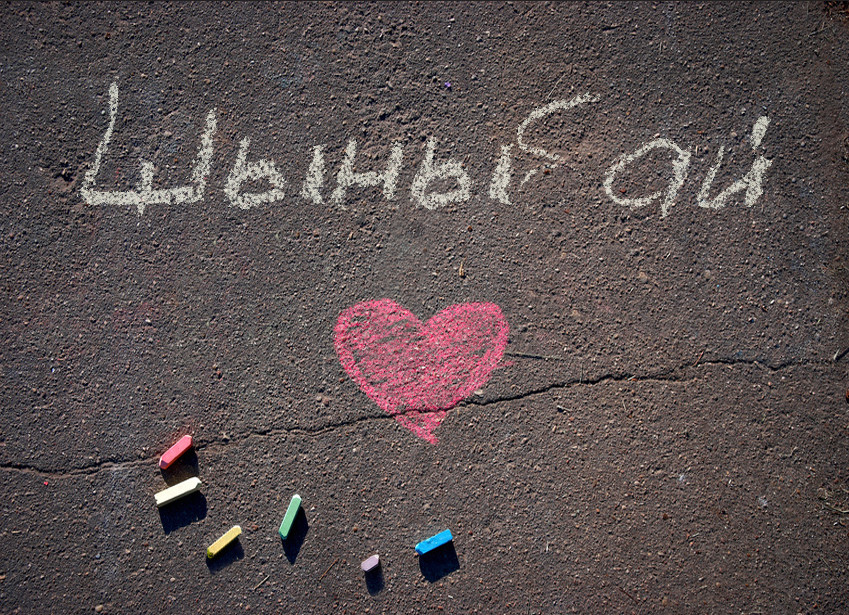 Шыныбай